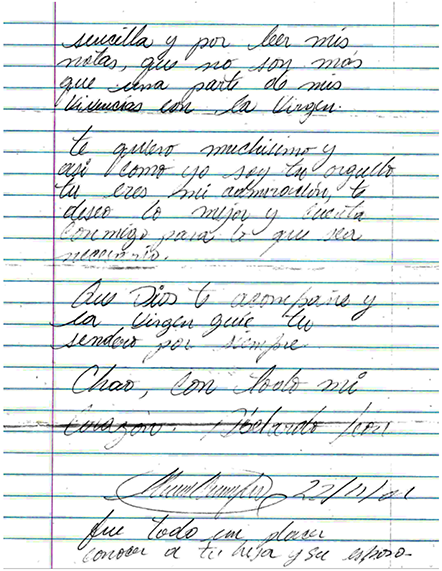 sencilla y por leer mis
notas, que no son más
que una parte de mis
vivencias con la Virgen.
te quiero muchisimo y
asi como yo soy tu orgullo
tu eres mi admiración, te
deseo lo mejor y cuenta
conmigo para lo que sea
necesario.
Que Dios te acompañe y
la Virgen guie tu
sendero por siempre
Chao, con todo mi
Corazón.
22/11/01
fue todo un placer
conocer a tu hija y su esposo.